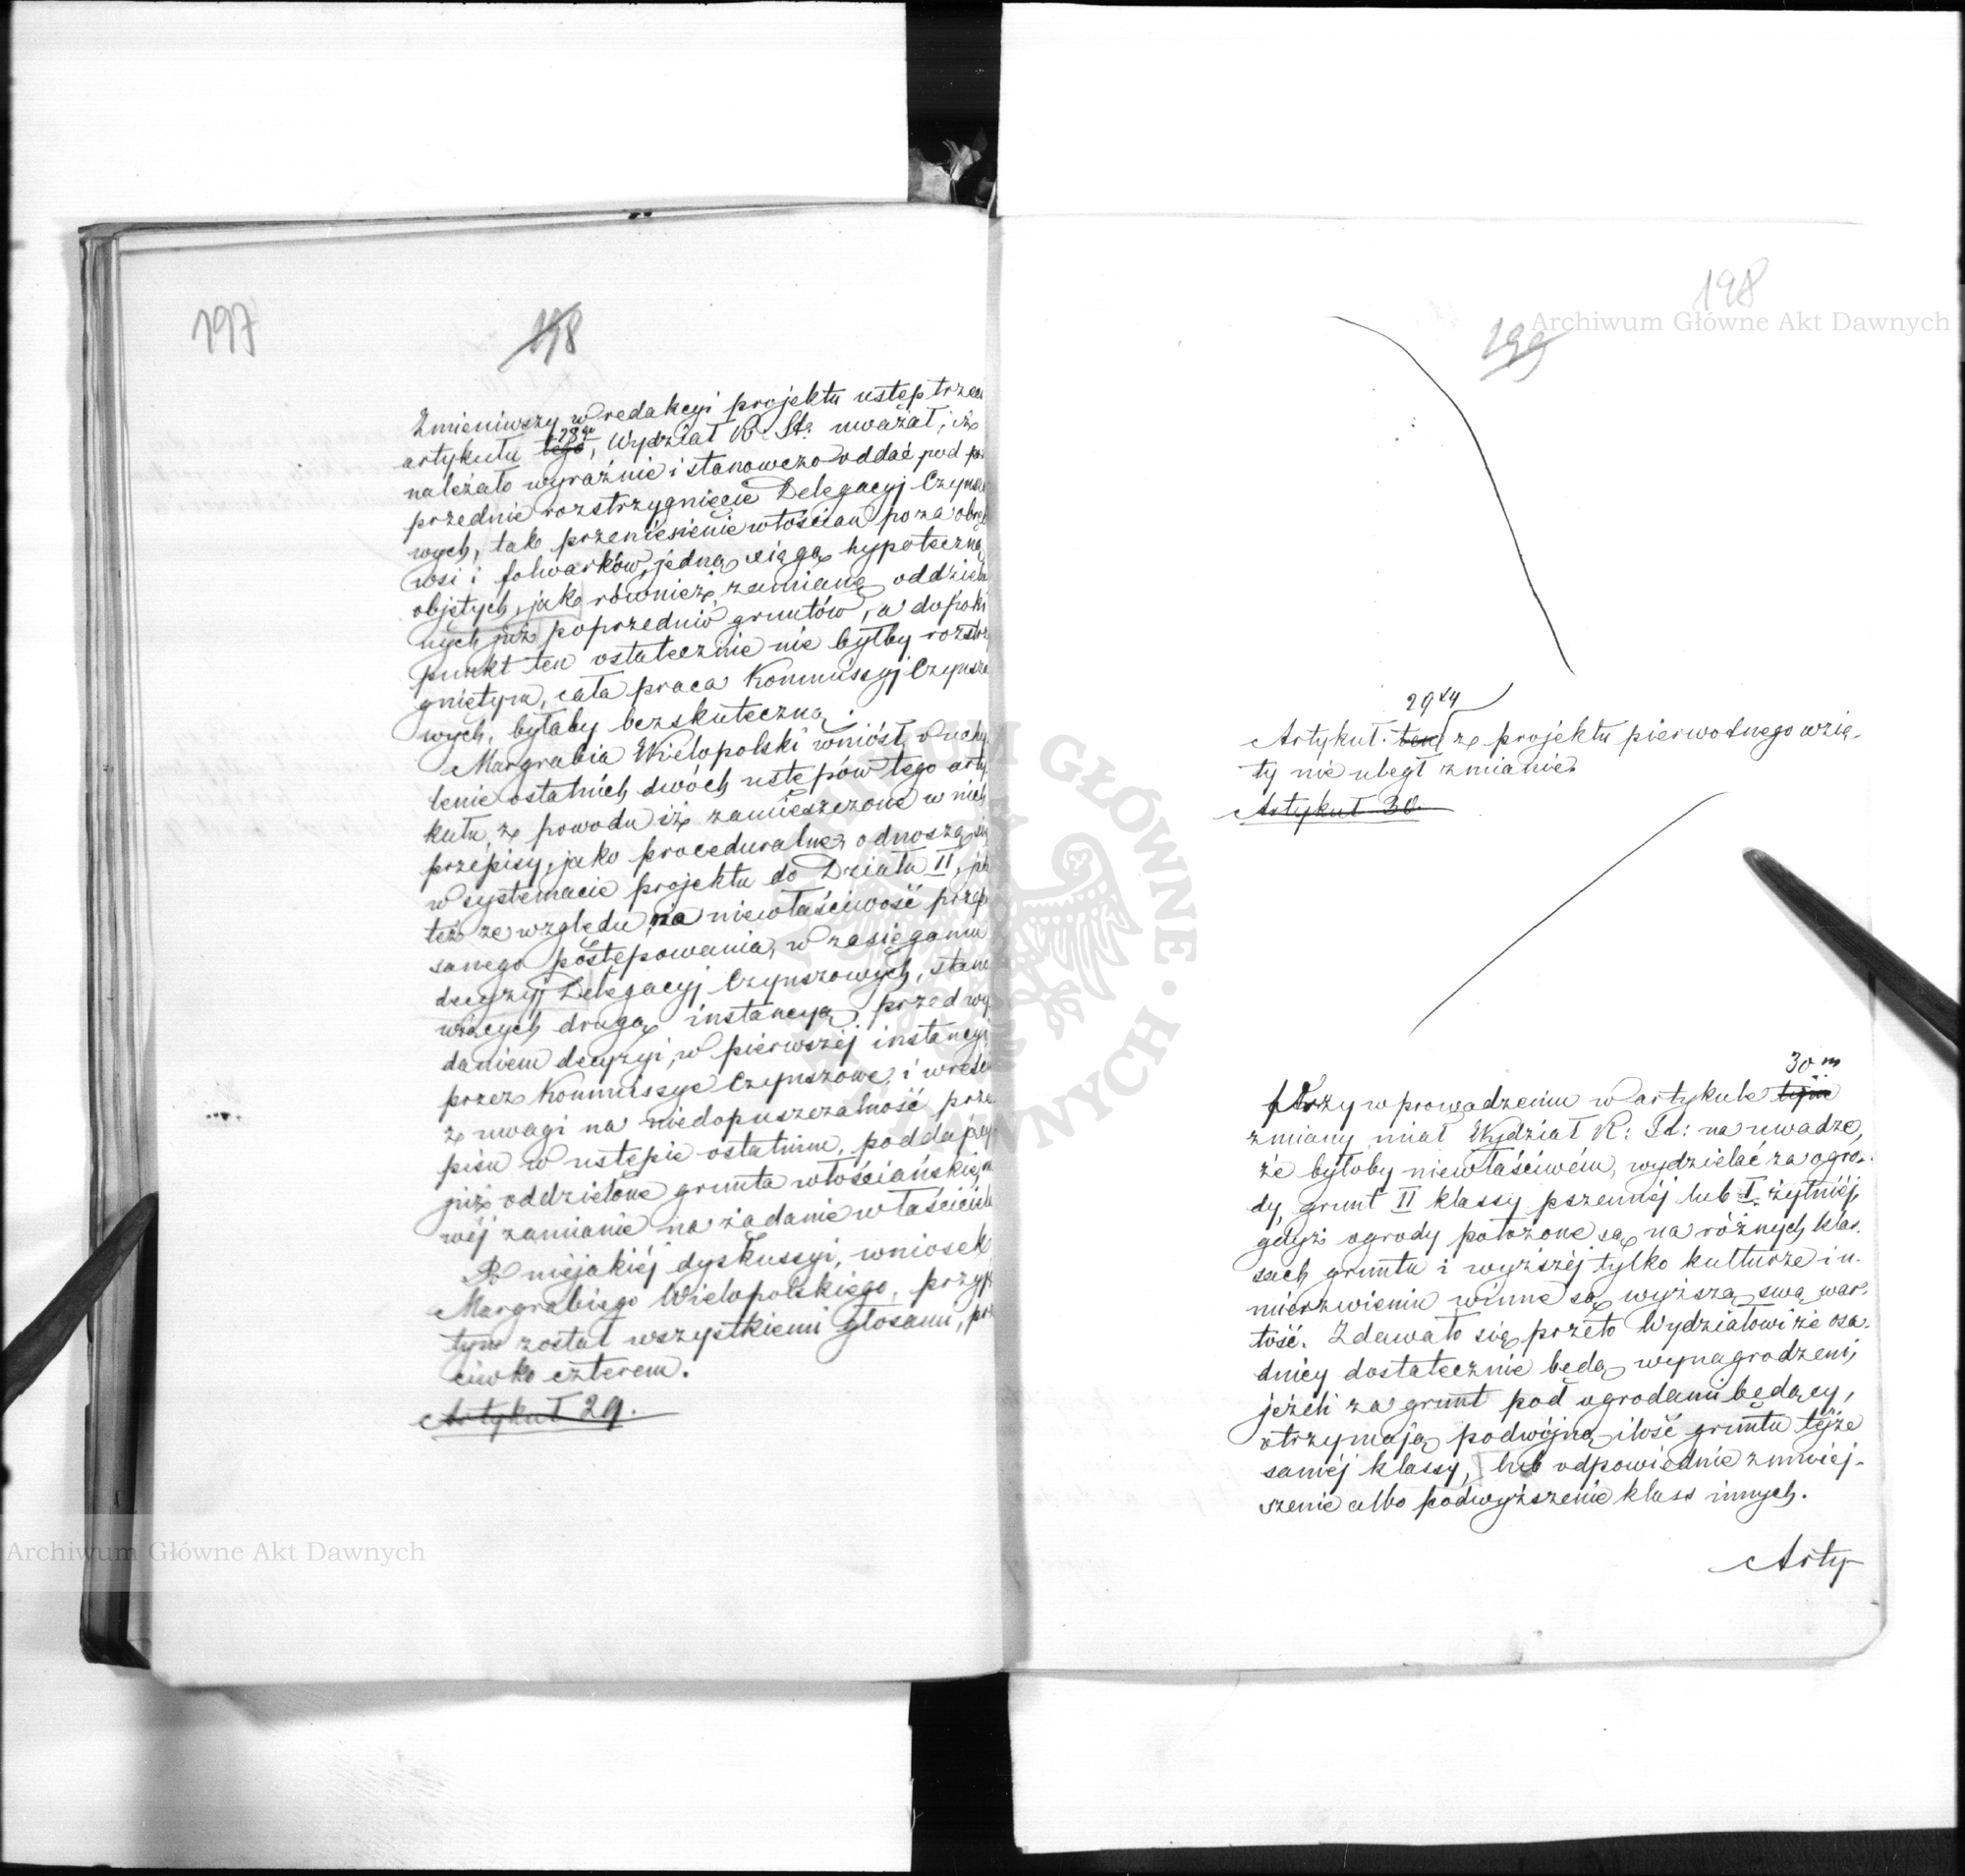 197
198
Zmieniwszy w redakcyi projektu ustęp trzeci
artykułu tego 28go, Wydział R. St. uważał, iż
należało wyraźnie i stanowczo oddać pod po
przednie rozstrzygnięcie Delegacyj Czynszo
wych, tak przeniesienie włościan poza obręb
wsi i folwarków, jedną xięgą hypoteczną
objętych, jak również, zamianę oddziela
nych już poprzednio gruntów, a dopóki
punkt ten ostatecznie nie byłby rozstrzy
gniętym, cała praca Kommissyj Czynszo
wych, byłaby bezskuteczną.
Margrabia Wielopolski wniósł o uchy
lenie ostatnich dwóch ustępów tego arty
kułu, z powodu iż zamieszczone w nich
przepisy, jako proceduralne odnoszą się
w systemacie projektu do Działu II, jak
też ze względu na niewłaściwość przepi
sanego postępowania, w zasięganiu
decyzyj Delegacyj Czynszowych, stano
wiących drugą instancyą, przed wy
daniem decyzyi, w pierwszéj instancyi
przez Kommissye Czynszowe, i wreszcie
z uwagi na niedopuszczalność prze
pisu w ustępie ostatnim, poddającego
już oddzielone grunta włościańskie, no
wéj zamianie na żądanie właściciela
Po niejakiéj dyskussyi, wniosek
Margrabiego Wielopolskiego, przyję
tym został wszystkiemi głosami, prze
ciwko czterem.
Artykuł 29.
198
199
Archiwum Główne Akt Dawnych
29ty
Artykuł ten z projektu pierwotnego wzię-
ty nie uległ zmianie.
Artykuł 30.
30m
Przy wprowadzeniu w artykule tym
zmiany miał Wydział R: St: na uwadze,
że byłoby niewłaściwém, wydzielać za ogro-
dy, grunt II klassy pszennéj lub I żytniéj,
gdyż ogrody położone są na różnych klas-
sach gruntu i wyższéj tylko kulturze i u-
mierzwieniu winne są wyższą swą war-
tość. Zdawało się przeto Wydziałowi że osa-
dnicy dostatecznie będą wynagrodzeni,
jeżeli za grunt pod ogrodami będący,
otrzymają podwójną ilość gruntu téjże
saméj klassy, lub odpowiednie zmniej-
szenie albo podwyższenie klass innych.
Arty-
Archiwum Główne Akt Dawnych
ARCHIWUM GŁÓWNE AKT DAWNYCH